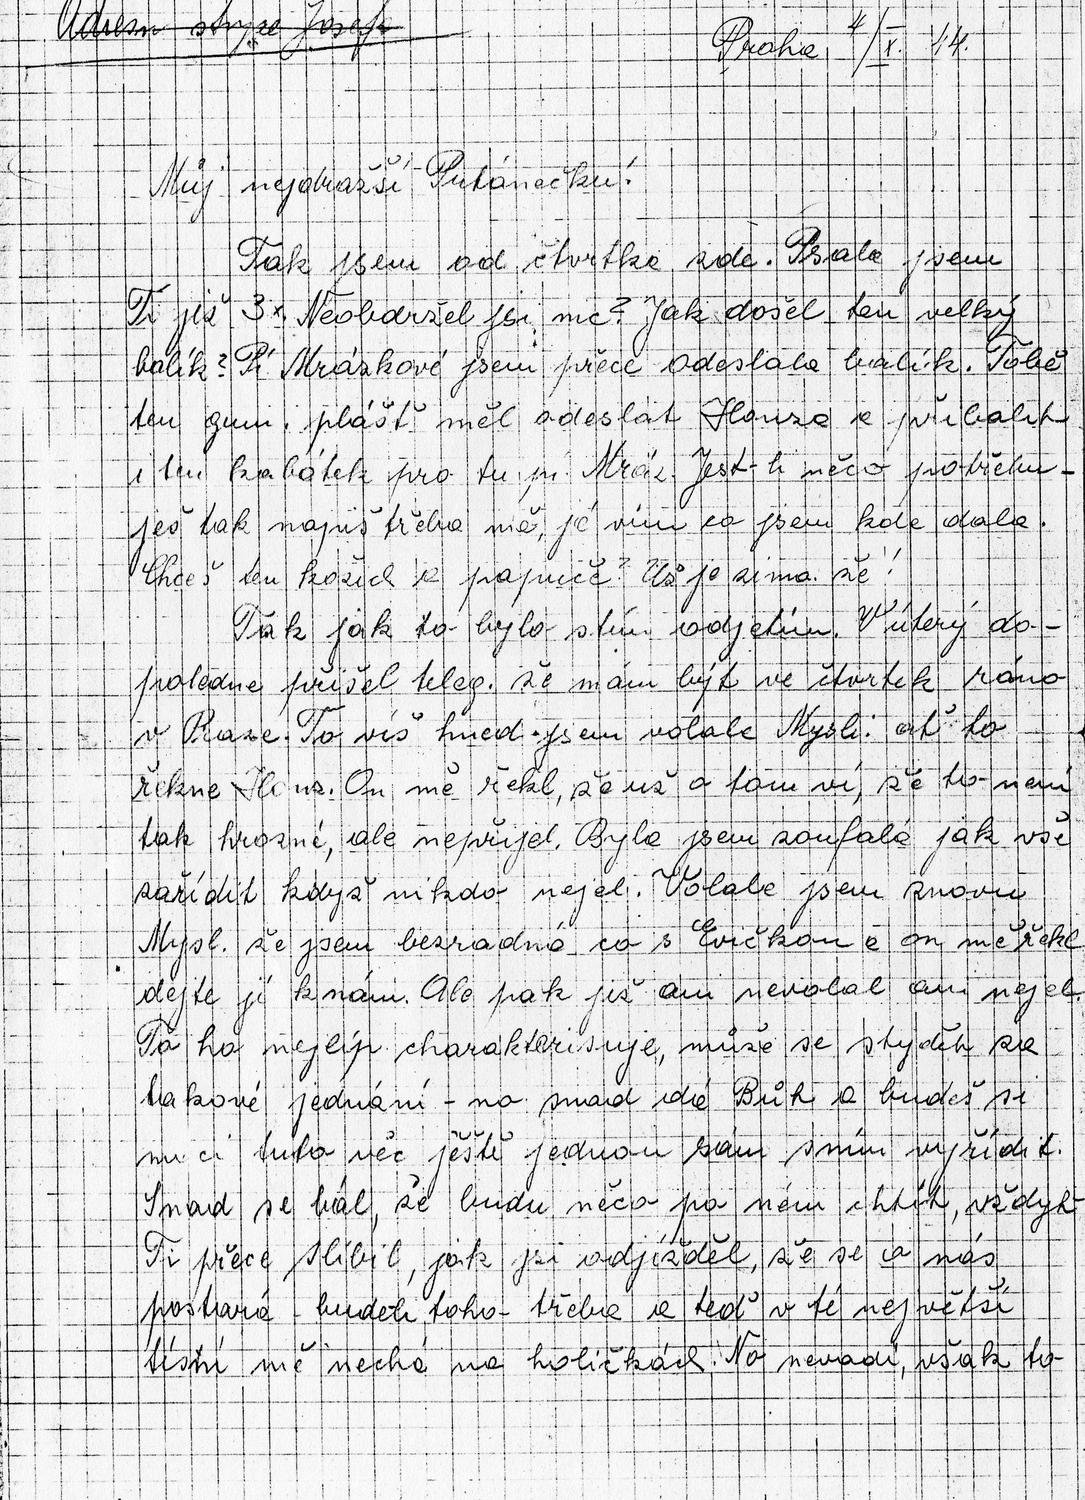 Adresa strýce Josefa
Praha, 4/X. 44.
Můj nejdražší Puťánečku!
Tak jsem od čtvrtka zde. Psala jsem
Ti již 3x. Neobdržel jsi nic? Jak došel ten velký
balík? Pí Mrázkové jsem přece odeslala balík. Tobě
ten gum. plášť měl odeslat Honza a přibalit
i ten kabátek pro tu pí Mráz. Jest-li něco potřebu-
ješ tak napiš třeba mě, já vím co jsem kde dala.
Chceš ten kožich a papuče? Už je zima že!
Tak jak to bylo s tím odjetím. V úterý do-
poledne přišel teleg. že mám být ve čtvrtek ráno
v Praze. To víš hned jsem volala Mysli. ať to
řekne Honz. On mě řekl, že už o tom ví, že to není
tak hrozné, ale nepřijel. Byla jsem zoufalá jak vše
zařídit když nikdo nejel. Volala jsem znovu
Mysl. že jsem bezradná co s Evičkou a on mě řekl
dejte jí k nám. Ale pak již ani nevolal ani nejel.
To ho nejlíp charakterisuje, může se stydět za
takové jednání - no snad dá Bůh a budeš si
moci tuto věc ještě jednou sám s ním vyřídit.
Snad se bál, že budu něco po něm chtít, vždyť
Ti přece slíbil, jak jsi odjížděl, že se o nás
postará - bude-li toho třeba a teď v té největší
tísni mě nechá na holičkách. No nevadí, však to